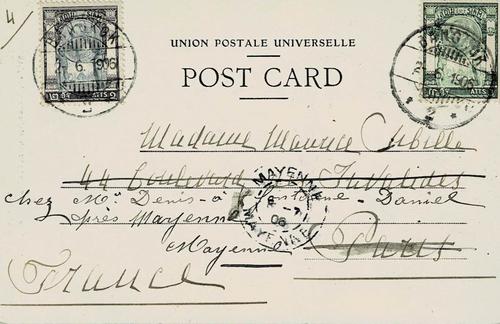 4/
BANGKOK
6
1906
2
ATTS.
BANGKOK
6
1906
2
ATTS.
UNION POSTALE UNIVERSELLE
POST CARD
Madame Maurice Cibille
44 Boulevard Invalides
chez Mr Denis-à Fontaine-Daniel
près Mayenne
MAYENNE
06
MAYENNE
Mayenne Paris
France